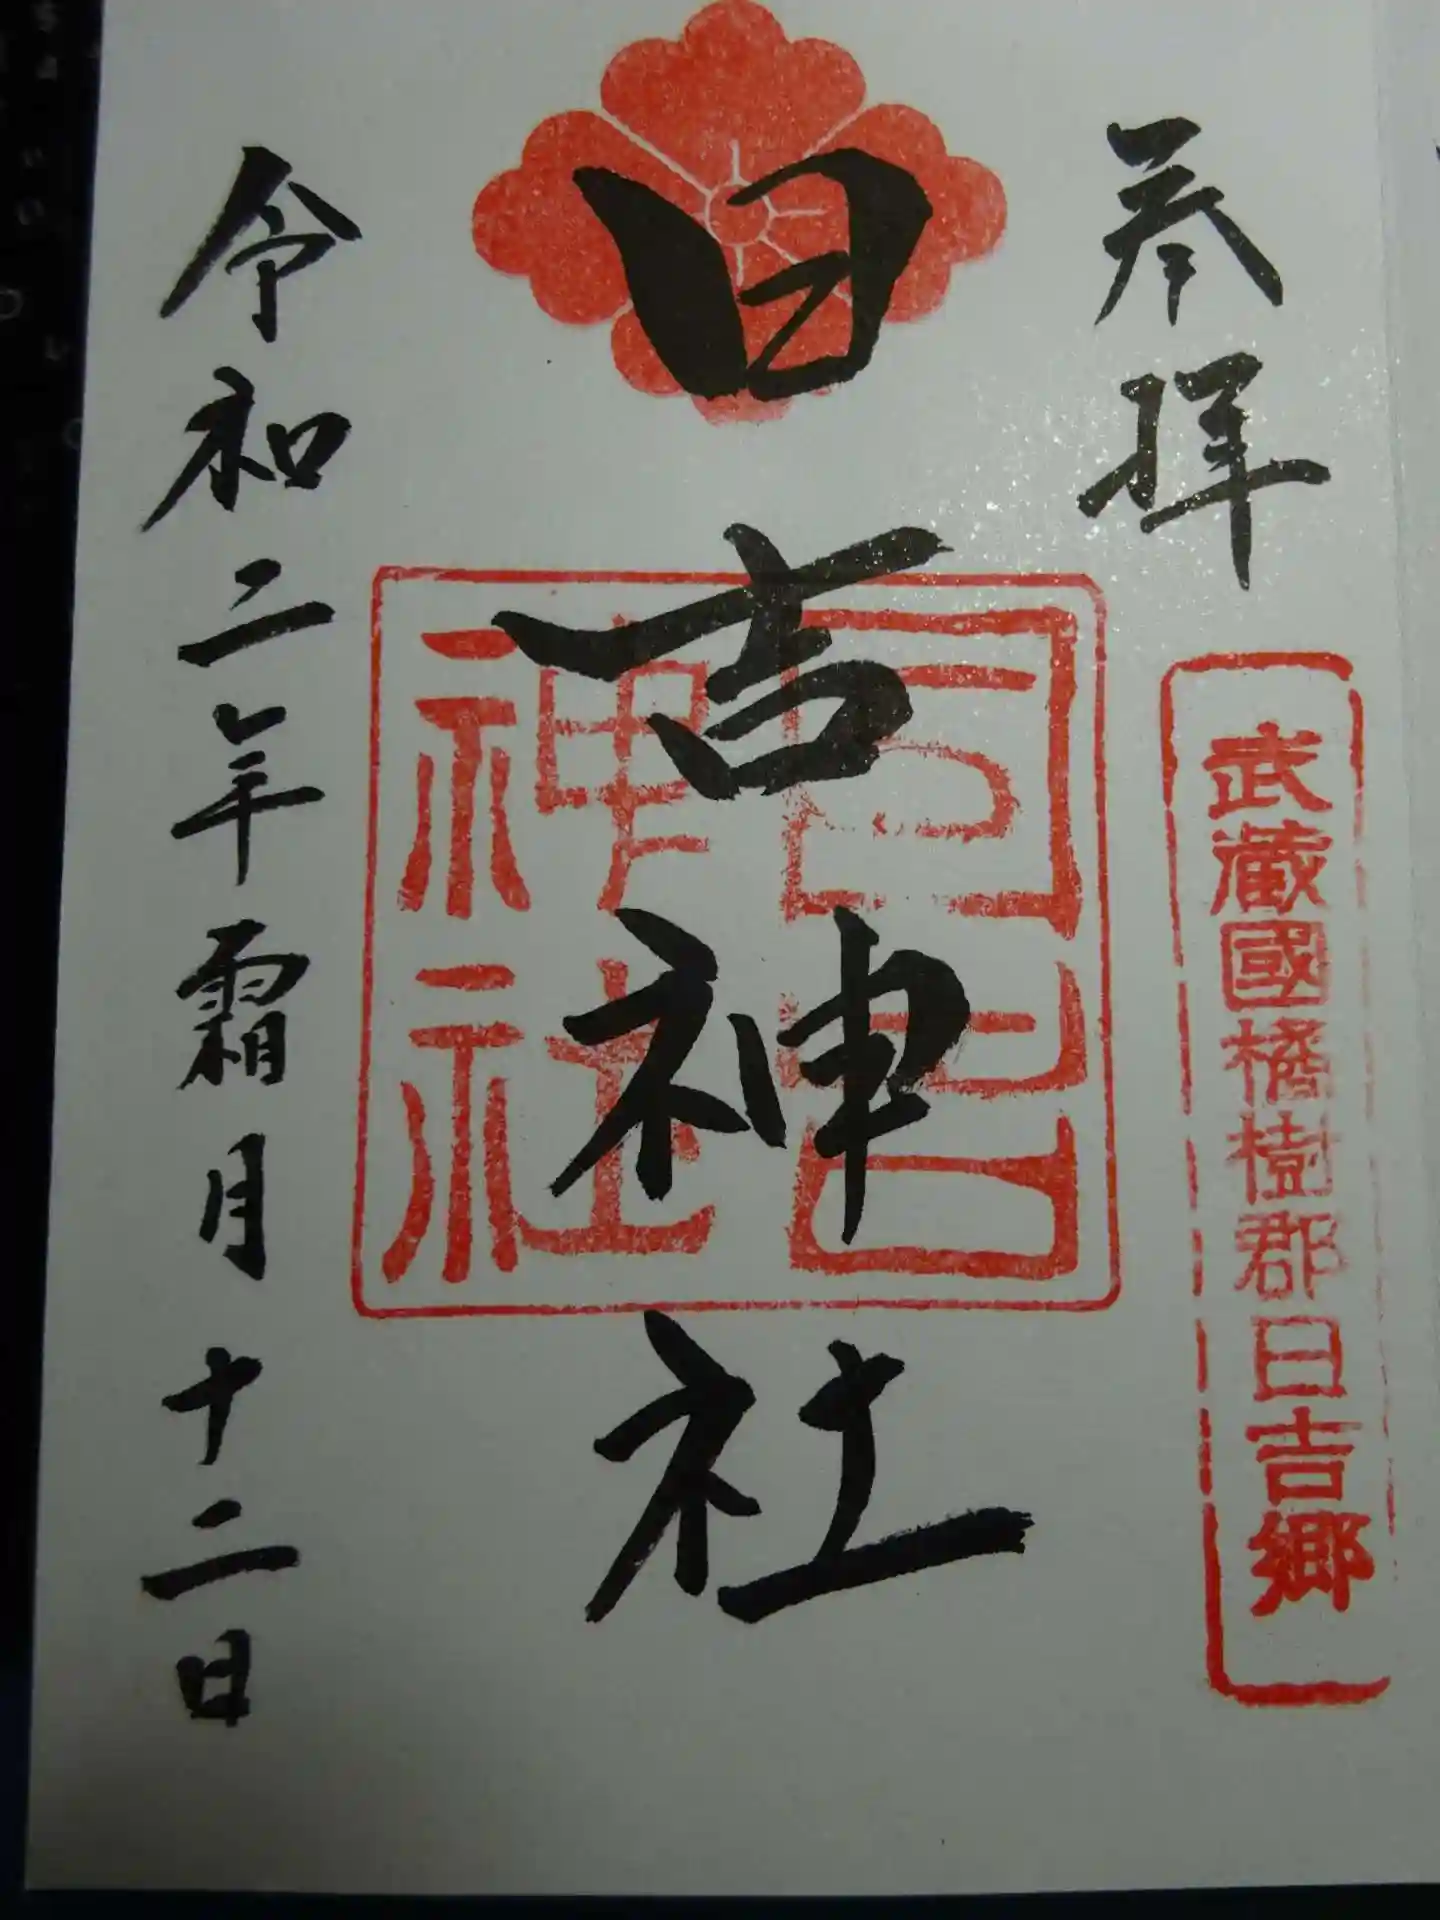 参拝
武蔵國橘樹郡日吉郷
日吉神社
日吉
神社
令和二年霜月十二日